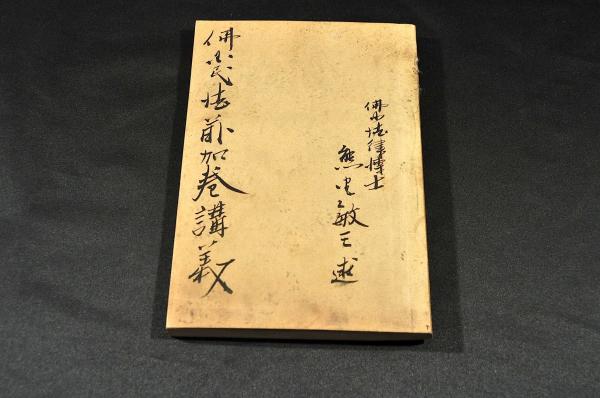 佛国法律博士
熊野敏三述
佛国民法前加巻講義